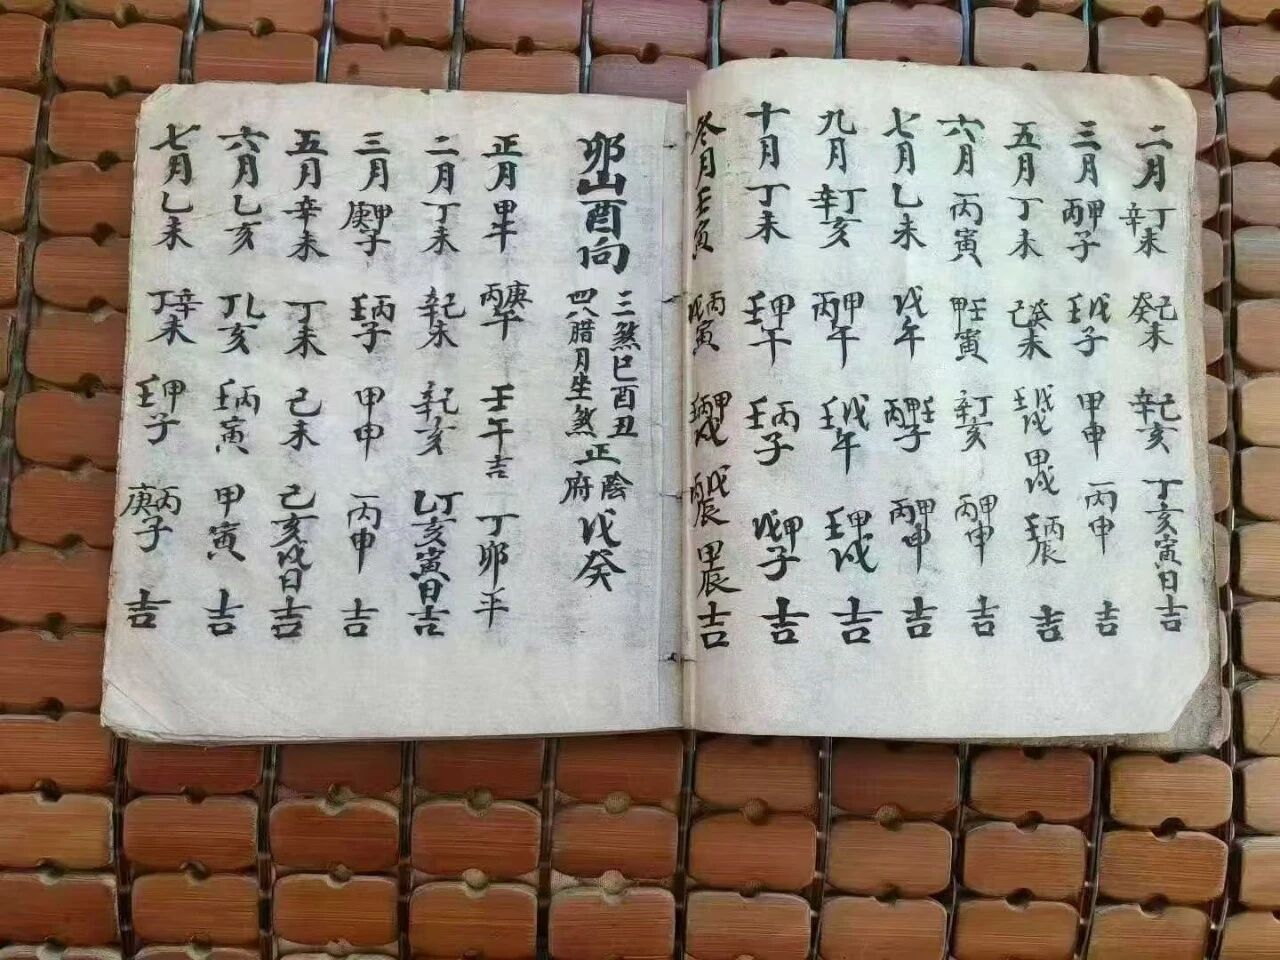 二月丁辛未己癸未己辛亥丁亥寅日吉
三月甲丙子戊壬子甲申丙申吉
五月丁未癸己未戊壬戌甲戌丙壬辰吉
六月丙寅壬甲寅丁辛亥甲丙申吉
七月乙未戊午壬甲丙子甲丙申吉
九月丁辛亥甲丙午戊壬午甲壬戌吉
十月丁未甲壬午丙壬子甲戊子吉
冬月壬寅丙戊寅甲丙壬戌戊丙辰甲辰吉
卯山酉向
三煞巳酉丑
四八腊月坐煞
陰府
正戊癸
正月甲午庚丙午壬午吉丁卯平
二月丁未己辛未己辛亥丁乙亥寅日吉
三月甲庚子丙壬子甲申丙申吉
五月辛未丁未己未己亥戌日吉
六月乙亥乙丁亥丙壬寅甲寅吉
七月乙未辛丁未甲壬子丙庚子吉